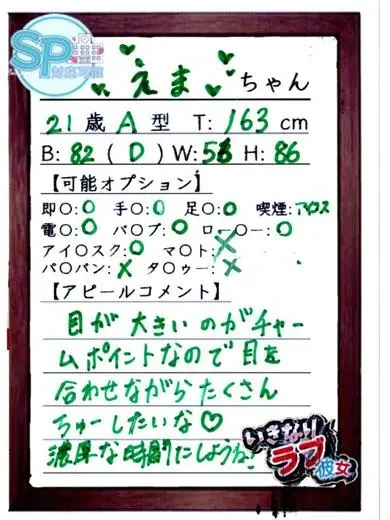 SP
対応可能
えま ちゃん
21歳 A型 T:163cm
B:82(D) W:56 H:86
【可能オプション】
即○:○ 手○:○ 足○:○ 喫煙:アイコス
電○:○ バ○ブ:○ ロー○ー:○
アイ○スク:○ マ○ト:×
パ○パン:× タ○ゥー:×
【アピールコメント】
目が大きいのがチャー
ムポイントなので目を
合わせながらたくさん
ちゅーしたいな♡
濃厚な時間にしようね!
いきなり
ラブ
彼女